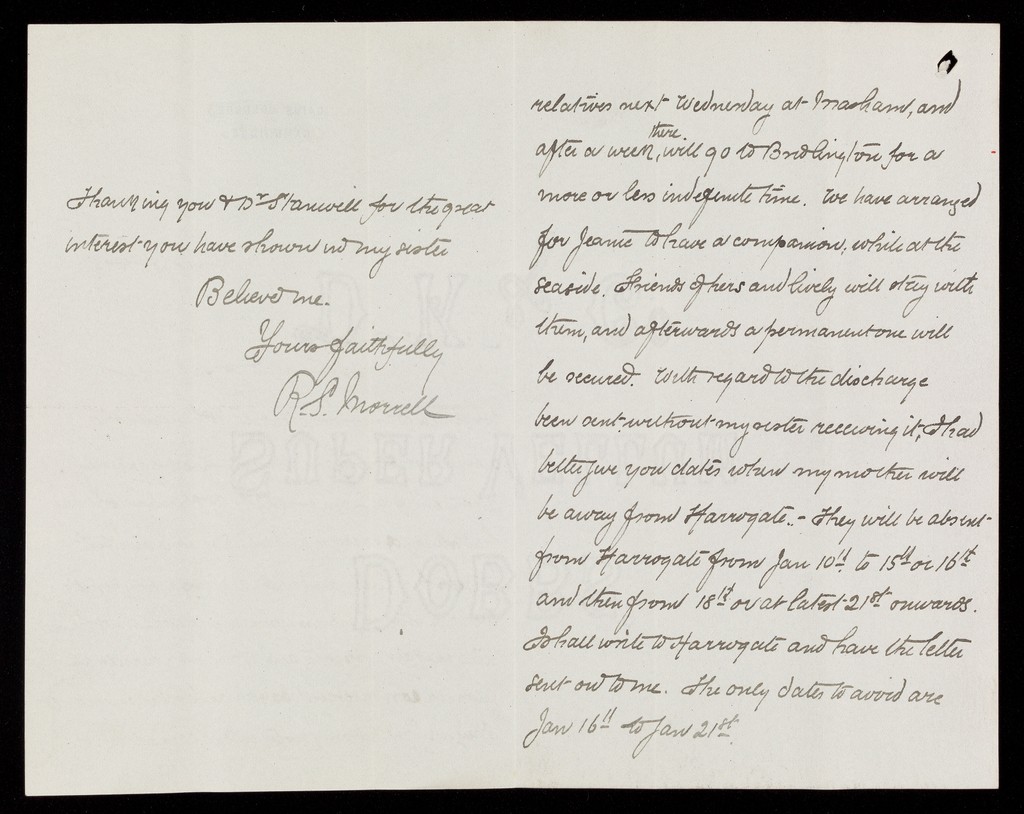 relatives next Wednesday at Masham, and
after a week there, will go to Bridlington for a
more or less indefinite time. We have arranged
for Jeanie to have a companion, while at the
seaside. Friends of hers and lively will stay with
them, and afterwards a permanent one will
be secured. With regard to the discharge
been sent without my sister receiving it, I had
better give you dates when my mother will
be away from Harrogate. - They will be absent
from Harrogate from Jan 10th to 15th or 16th
and then from 18th or at latest 21st onwards.
I shall write to Harrogate and have the letter
sent on to me. The only dates to avoid are
Jan 16th to Jan 21st.
Thanking you & Dr Stanwell for the great
interest you have shown in my sister
Believe me.
Yours faithfully
R.S. Morrell